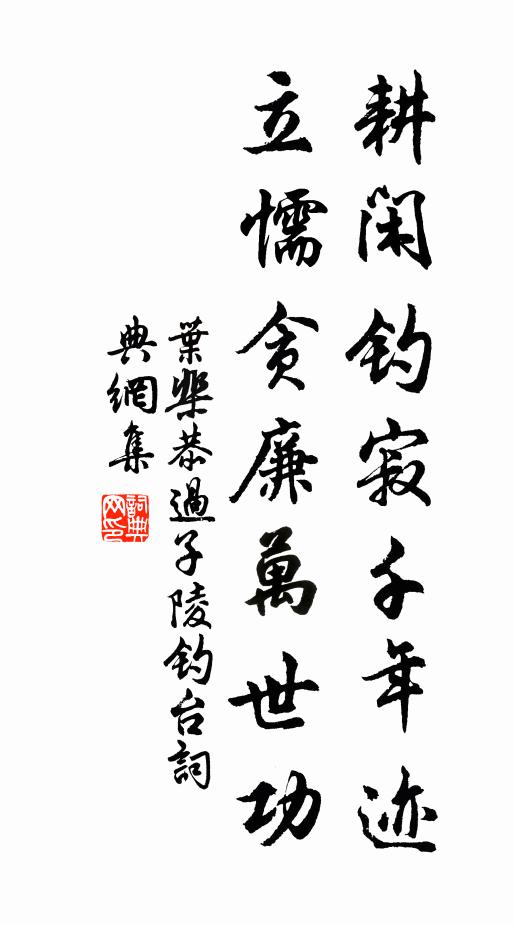 耕閑釣寂千年迹
立懦貪廉萬世功
葉棐恭過子陵釣台詞
典網集
詞典網印